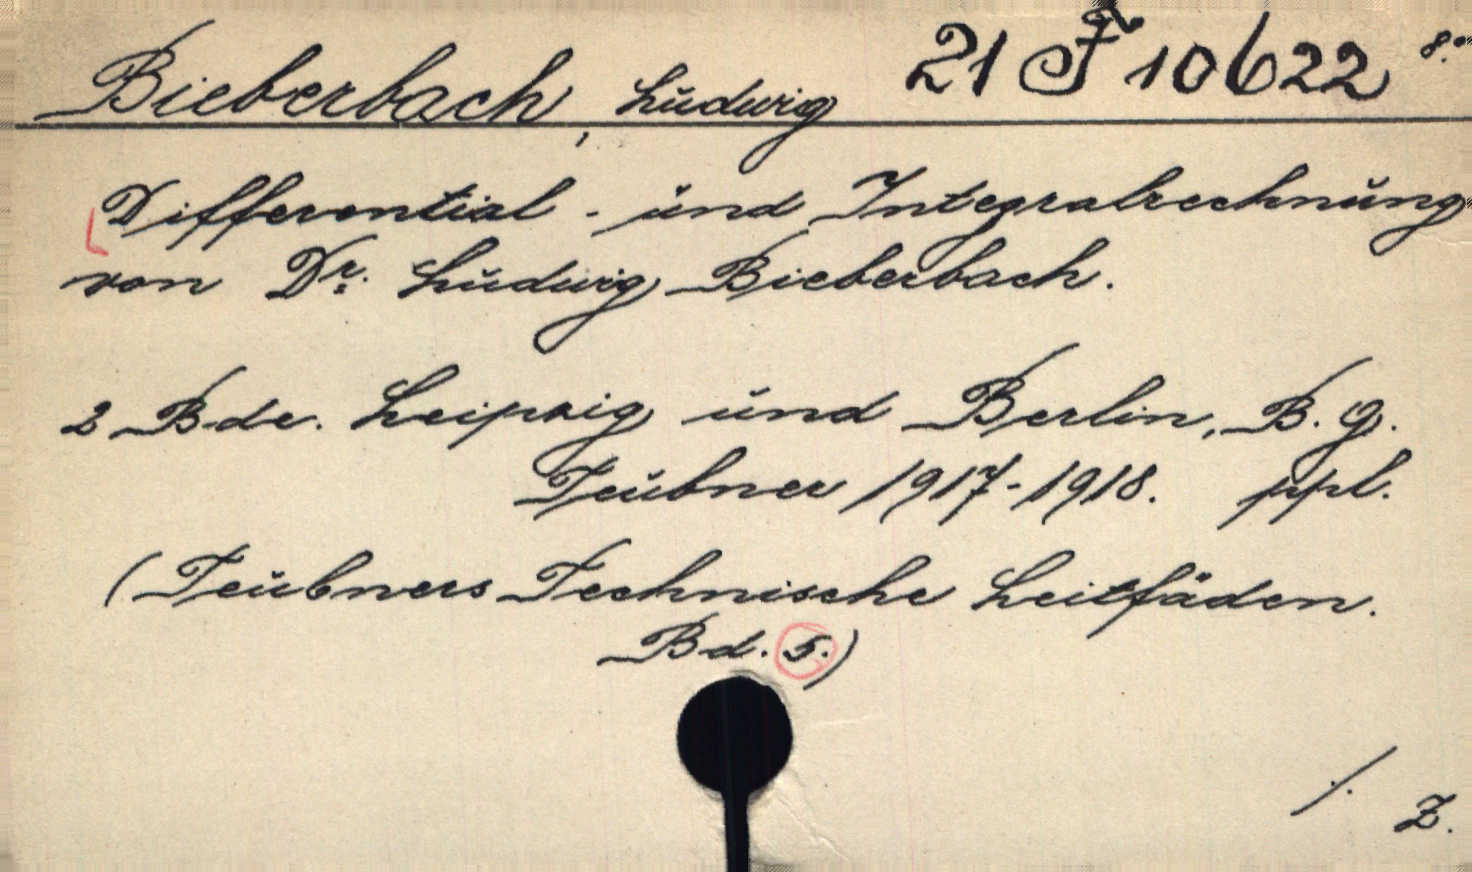 Bieberbach, Ludwig 21 F 10622 8.°
Differential- und Integralrechnung
von Dr. Ludwig Bieberbach.
2 Bde. Leipzig und Berlin, B. G.
Teubner 1917-1918. ppl.
(Teubners Technische Leitfäden.
Bd. 5.)
./.
Z.